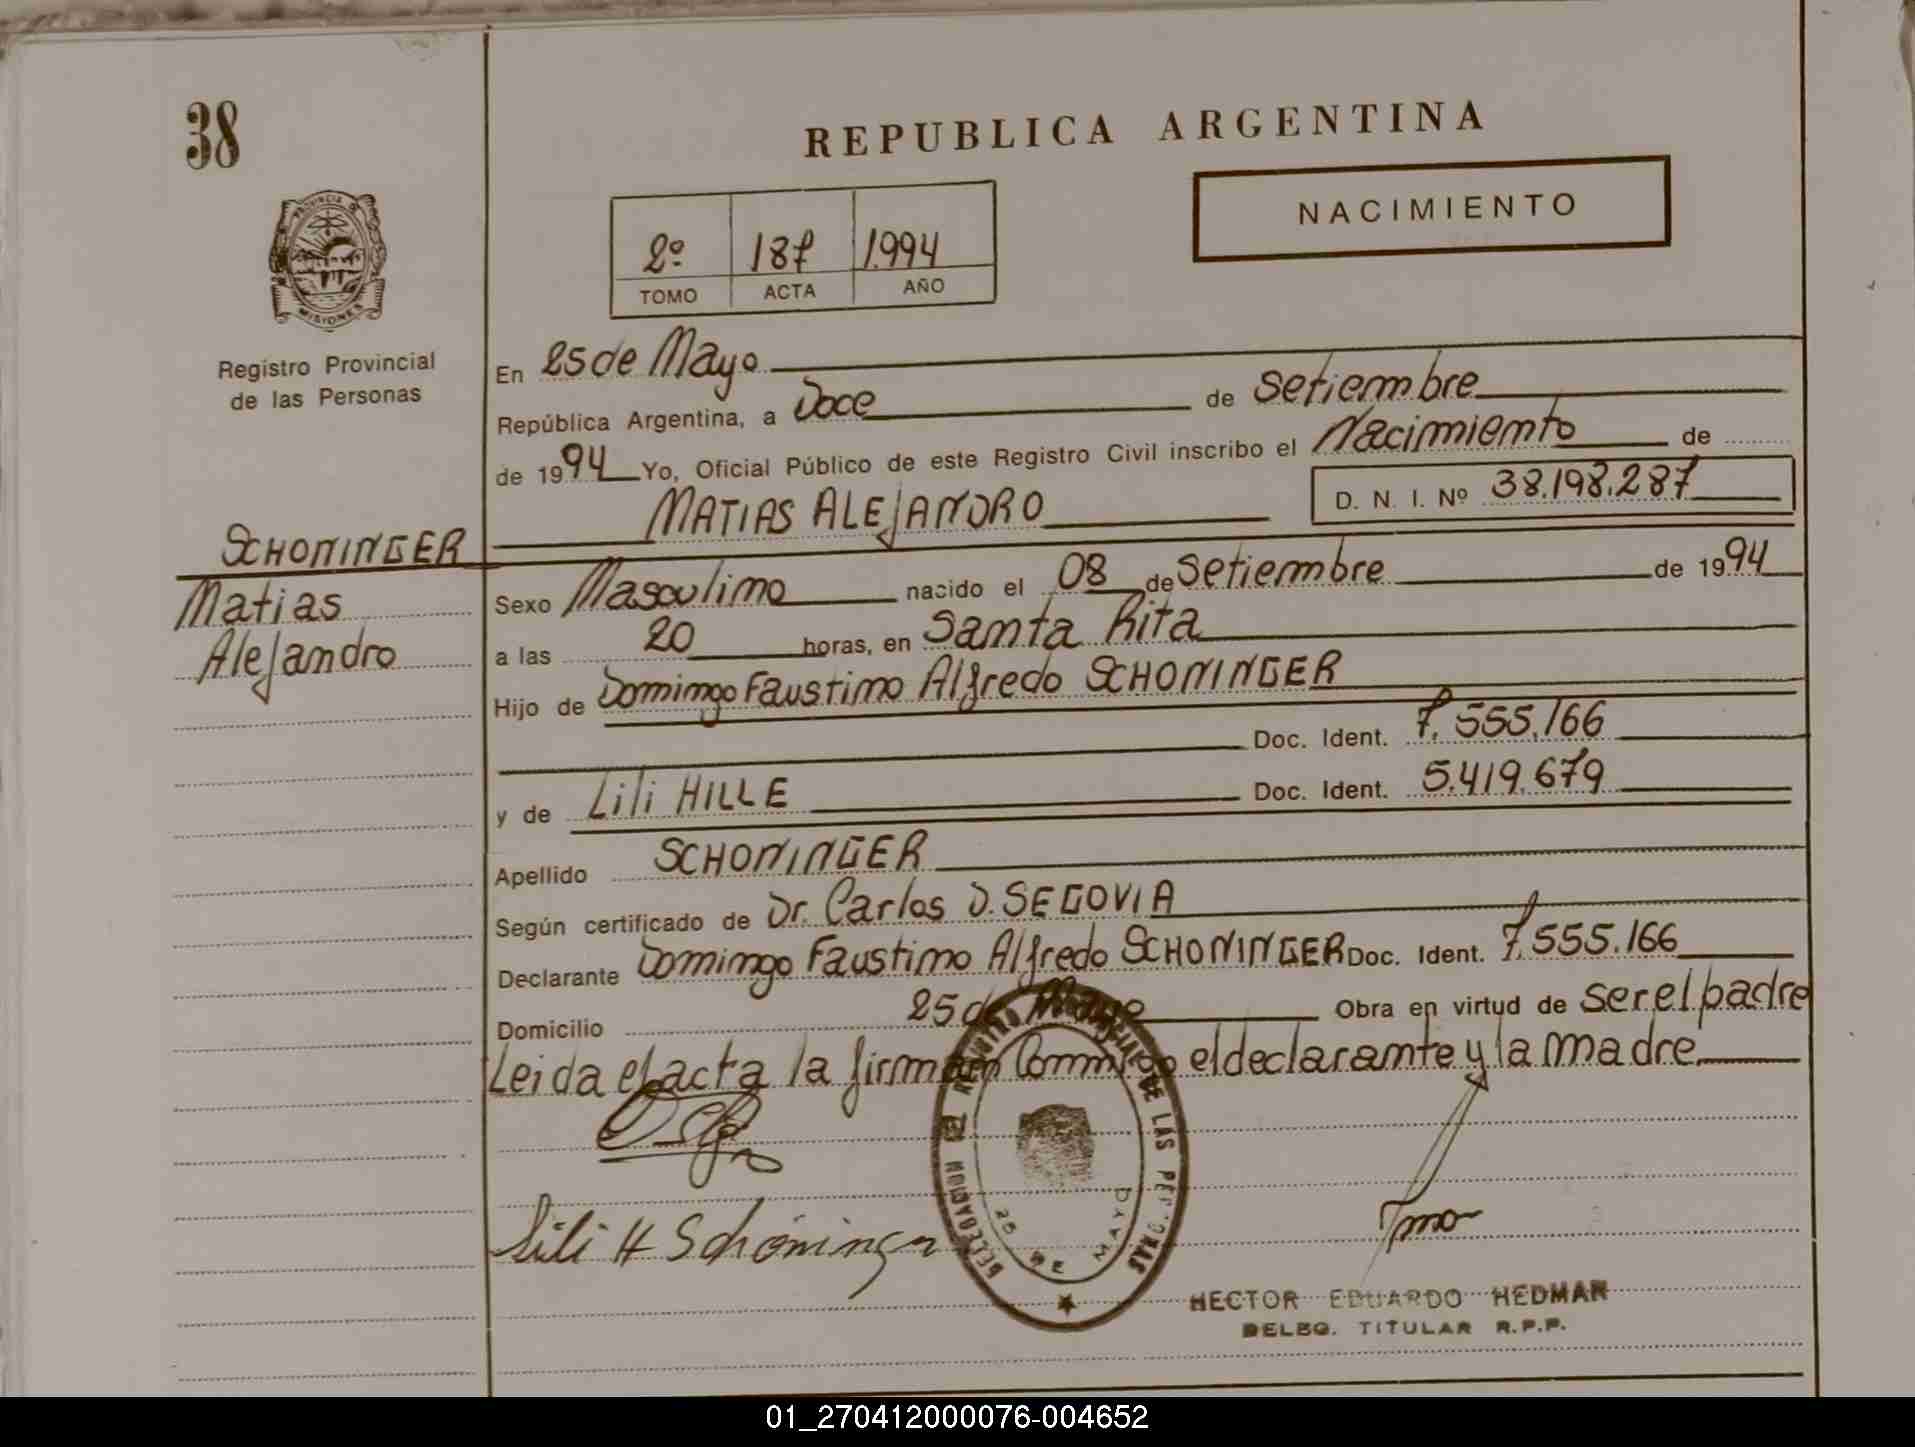 38
REPUBLICA ARGENTINA
NACIMIENTO
PROVINCIA DE
MISIONES
2º 187 1.994
TOMO ACTA AÑO
Registro Provincial
de las Personas
En 25 de Mayo
República Argentina, a Doce de Setiembre
de 1994 Yo, Oficial Público de este Registro Civil inscribo el Nacimiento de
MATIAS ALEJANDRO D. N. I. Nº 38.198.287
SCHONINGER
Matias
Alejandro
Sexo Masculino nacido el 08 de Setiembre de 1994
a las 20 horas, en Santa Rita
Hijo de Domingo Faustino Alfredo SCHONINGER
Doc. Ident. 7.555.166
y de Lili HILLE Doc. Ident. 5.419.679
Apellido SCHONINGER
Según certificado de Dr. Carlos D. SEGOVIA
Declarante Domingo Faustino Alfredo SCHONINGER Doc. Ident. 7.555.166
Domicilio 25 de Mayo Obra en virtud de ser el padre
Leida el acta la firman Conmigo el declarante y la madre
DELEGACION DEL REGISTRO PROVINCIAL DE LAS PERSONAS
25 DE MAYO
Lili H Schöninger
HECTOR EDUARDO HEDMAN
DELEG. TITULAR R.P.P.
01_270412000076-004652